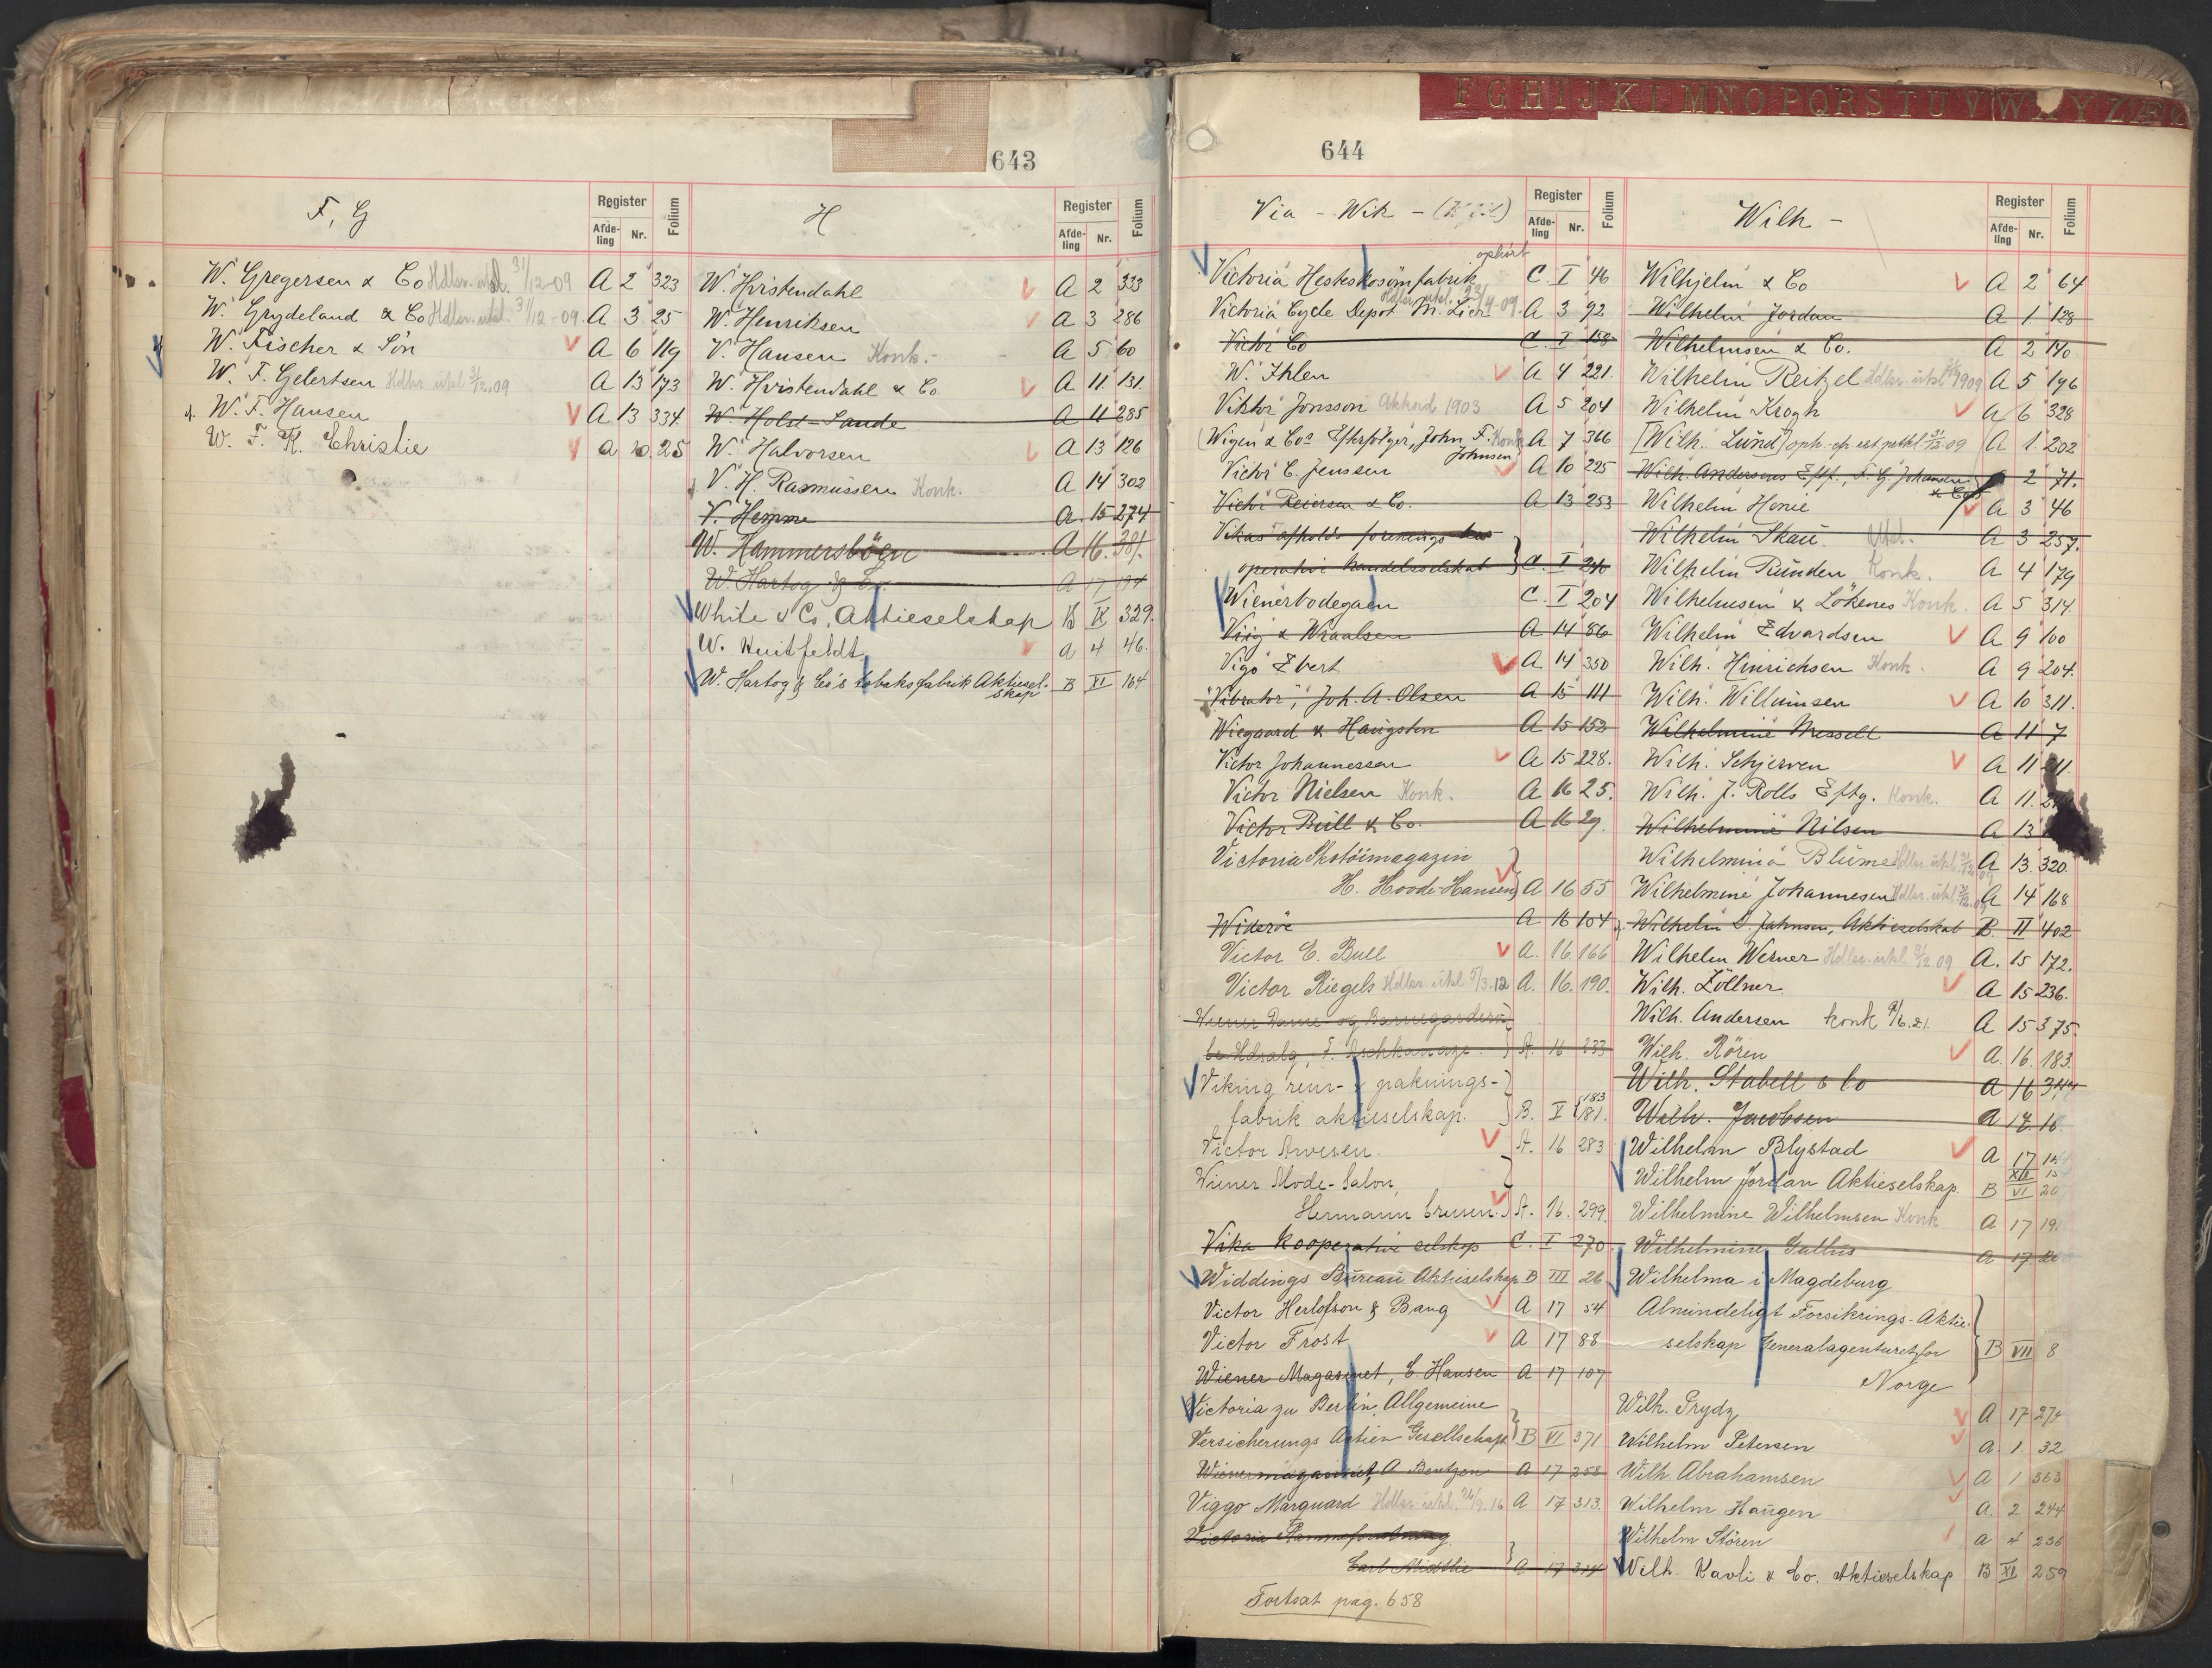 643
F, G
Register
Afde-
ling
Nr.
Folium
W. Gregersen & Co Hdlsr. utsl. 31/12-09 A 2 323
W. Grydeland & Co Hdlsr. utsl. 31/12-09. A 3 25
W. Fischer & Sön A 6 119
W. F. Gelertsen Hdlsr. utsl 31/12.09 A 13 173
W. F. Hansen A 13 334.
W. F. K. Christie a 10. 25
H
Register
Afde-
ling
Nr.
Folium
W. Hvistendahl A 2 333
W. Henriksen a 3 286
V. Hansen Konk. A 5 60
W. Hvistendahl & Co. A 11. 131.
W. Holst-Sande A 11 285
W. Halvorsen A 13 126
V. H. Rasmussen Konk. A 14 302
V. Hemme A. 15 274
W. Hammersbögn A 16. 381.
W. Hartog & Co. A 17 194
White & Co, Aktieselskap B IX 329.
W. Huitfeldt a 4 46.
W. Hartog & Co's tobaksfabrik Aktiesel-
skap B XI 164
F G H I J K L M N O P Q R S T U V W X Y Z Æ
644
Via - Wik -
Register
Afde-
ling
Nr.
Folium
ophört
Victoria Hesteskosömfabrik C. I 46
Hdlsr. utsl. 22/4-09.
Victoria Cycle Depot M. Lien A 3 92
Victor Co C. I 158
W. Ihlen A 4 221.
Viktor Jonsson Akkord 1903 A 5 204
(Wigen & Cos Efterfölger, John F. Konk A 7 366
Johnsen)
Victor C. Jenssen A 10 225
Victor Reiersen & Co. A 13 253
Vikas afholds forenings
operative handelsselskab } C. I 210
Wienerbodegaen C. I 204
Viig & Wraalsen A 14 86
Vigo Ebert A 14 350
"Vibrator", Joh. A. Olsen A 15 111
Wiegaard & Haugsten A 15 153
Victor Johannessen A 15 228.
Victor Nielsen Konk. A 16 25.
Victor Bull & Co. A 16 29.
Victoria Skotöimagazin
H. Hoode-Hansen } A 16 55
Wideröe A 16 104
Victor E. Bull A. 16. 166
Victor Riegels Hdlsr. utsl 5/3.12 A. 16. 190.
Wiener Dame- og Barnegardero-
be Udsalg, } A. 16 233
Viking rem- & paknings- }
fabrik aktieselskap. } B. V { 183
181.
Victor Arvesen. A. 16 283
Wiener Mode-Salon, }
Hermann A. 16. 299.
Vika kooperative selskap C. I 270.
Widdings Bureau Aktieselskap B III 26
Victor Herlofson & Bang A 17 54
Victor Frost A 17 88
Wiener Magasinet, C. Hansen A 17 107
Victoria zu Berlin Allgemeine }
Versicherungs Actien Gesellschaft } B VI 371
Wienermagasinet, A Bentzen A 17 258
Viggo Marquard Hdlsr. utsl. 26/9.16 A 17 313.
Victoria
Carl Midtlie } A 17 314
Fortsat pag. 658
Wilh -
Register
Afde-
ling
Nr.
Folium
Wilhjelm & Co A 2 64
Wilhelm Jordan A 1. 128
Wilhelmsen & Co. A 2 140
Wilhelm Reitzel Hdlsr. utsl. 1909 A 5 196
Wilhelm Krogh A 6 328
[Wilh. Lund] oph. 31/12-09 A 1. 202
Wilh. Andersens Eftf., F. G. Johansen
& Co. A 2 71.
Wilhelm Henie A 3 46
Wilhelm Skau. Utsl. A 3 257.
Wilhelm Runden Konk. A 4 179
Wilhelmsen & Lökenes Konk. A 5 314.
Wilhelm Edvardsen A 9 100
Wilh. Hinrichsen Konk. A 9 204.
Wilh. Willumsen A 10 311.
Wilhelmine Messelt A 11 7
Wilh. Schjerven A 11
Wilh. J. Rolls Eftg. Konk. A 11.
Wilhelmine Nilsen A 13
Wilhelmina Blume Hdlsr. utsl. 31/12 09 A 13. 320.
Wilhelmine Johannesen Hdlsr. utsl. 31/12.09 A 14 168
Wilhelm S. Johnsen, Aktieselskab B. II 402
Wilhelm Werner Hdlsr. utsl 31/12 09 A. 15 172.
Wilh. Zöllner. A 15 236.
Wilh. Andersen konk 9/6.21. A 15 375.
Wilh. Rören A. 16. 183.
Wilh. Stabell & Co A 16 344
Wilh. Jacobsen A 17. 10
Wilhelm Blystad A 17
Wilhelm Jordan Aktieselskap. B XII 15
VI 20
Wilhelmine Wilhelmsen Konk A 17 19.
Wilhelmine Gallus A 17
Wilhelma i Magdeburg
Almindeligt Forsikrings-Aktie- }
selskap Generalagenturet for } B VII 8
Norge
Wilh. Prydz A 17 274
Wilhelm Petersen A. 1. 32
Wilh. Abrahamsen A 1 363
Wilhelm Haugen A. 2 244
Wilhelm Stören a 4 236
Wilh. Kavli & Co. Aktieselskap B XI 259